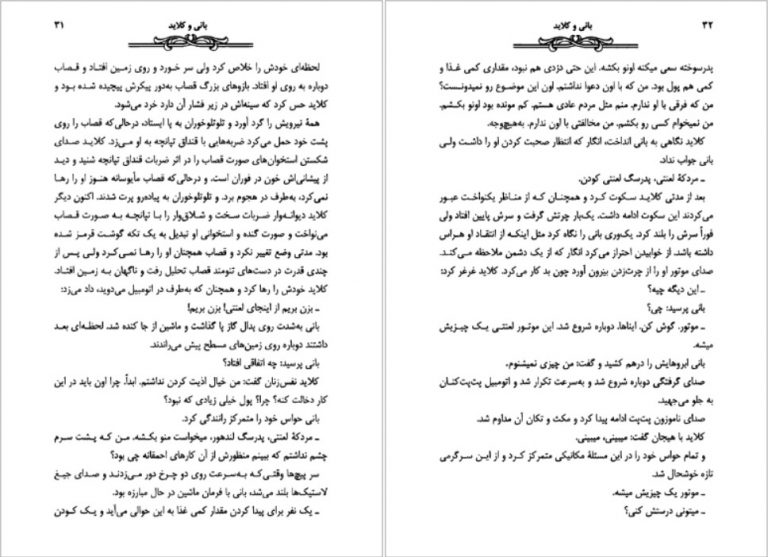 بانی و کلاید ۳۱
لحظه‌ای خودش را خلاص کرد ولی سر خورد و روی زمین افتاد و قصاب
دوباره به روی او افتاد. بازوهای بزرگ قصاب به‌دور پیکرش پیچیده شده بود و
کلاید حس کرد که سینه‌اش در زیر فشار آن دارد خرد می‌شود.
همهٔ نیرویش را گرد آورد و تلوتلوخوران به پا ایستاد، درحالی‌که قصاب را روی
پشت خود حمل می‌کرد ضربه‌هایی با قنداق تپانچه به او می‌زد. کلاید صدای
شکستن استخوان‌های صورت قصاب را در اثر ضربات قنداق تپانچه شنید و دید
از پیشانی‌اش خون در فوران است، و درحالی‌که قصاب مأیوسانه هنوز او را رها
نمی‌کرد، به‌طرف در هجوم برد. و تلوتلوخوران به پیاده‌رو پرت شدند. اکنون دیگر
کلاید دیوانه‌وار ضربات سخت و شلاق‌وار را با تپانچه به صورت قصاب
می‌نواخت و صورت گنده و استخوانی او تبدیل به یک تکه گوشت قرمز شده
بود. مدتی وضع تغییر نکرد و قصاب همچنان او را رها نمی‌کرد ولی پس از
چندی قدرت در دست‌های تنومند قصاب تحلیل رفت و ناگهان به زمین افتاد.
کلاید خودش را رها کرد و همچنان که به‌طرف در اتومبیل می‌دوید، داد می‌زد:
ـ بزن بریم از اینجای لعنتی! بزن بریم!
بانی به‌شدت روی پدال گاز پا گذاشت و ماشین از جا کنده شد. لحظه‌ای بعد
داشتند دوباره روی زمین‌های مسطح پیش می‌راندند.
بانی پرسید: چه اتفاقی افتاد؟
کلاید نفس‌زنان گفت: من خیال اذیت کردن نداشتم. ابداً. چرا اون باید در این
کار دخالت کنه؟ چرا؟ پول خیلی زیادی که نبود؟
بانی حواس خود را متمرکز رانندگی کرد.
ـ مردکهٔ لعنتی، پدرسگ لندهور، میخواست منو بکشه. من که پشت سرم
چشم نداشتم که ببینم منظورش از آن کارهای احمقانه چی بود؟
سر پیچ‌ها وقتی‌که به‌سرعت روی دو چرخ دور می‌زدند و صدای جیغ
لاستیک‌ها بلند می‌شد، بانی با فرمان ماشین در حال مبارزه بود.
ـ یک نفر برای پیدا کردن مقدار کمی غذا به این حوالی می‌آید و یک کودن
۳۲ بانی و کلاید
پدرسوخته سعی میکنه اونو بکشه. این حتی دزدی هم نبود، مقداری کمی غذا و
کمی هم پول بود. من که با اون دعوا نداشتم. اون این موضوع رو نمیدونست؟
من که فرقی با او ندارم. منم مثل مردم عادی هستم. کم مونده بود اونو بکشم.
من نمیخوام کسی رو بکشم. من مخالفتی با اون ندارم. به‌هیچ‌وجه.
کلاید نگاهی به بانی انداخت، انگار که انتظار صحبت کردن او را داشت ولی
بانی جواب نداد.
ـ مردکهٔ لعنتی، پدرسگ لعنتی کودن.
بعد از مدتی کلاید سکوت کرد و همچنان که از مناظر یکنواخت عبور
می‌کردند این سکوت ادامه داشت. یک‌بار چرتش گرفت و سرش پایین افتاد ولی
فوراً سرش را بلند کرد. یک‌وری بانی را نگاه کرد مثل اینکه از انتقاد او هراس
داشته باشد. از خوابیدن احتراز می‌کرد انگار که از یک دشمن ملاحظه می‌کند.
صدای موتور او را از چرت‌زدن بیرون آورد چون بد کار می‌کرد. کلاید غرغر کرد:
ـ این دیگه چیه؟
بانی پرسید: چی؟
ـ موتور. گوش کن. ایناها. دوباره شروع شد. این موتور لعنتی یک چیزیش
میشه.
بانی ابروهایش را درهم کشید و گفت: من چیزی نمیشنوم.
صدای گرفتگی دوباره شروع شد و به‌سرعت تکرار شد و اتومبیل پت‌پت‌کنان
به جلو می‌جهید.
صدای ناموزون پت‌پت ادامه پیدا کرد و مکث و تکان آن مداوم شد.
کلاید با هیجان گفت: میبینی، میبینی.
و تمام حواس خود را در این مسئلهٔ مکانیکی متمرکز کرد و از این سرگرمی
تازه خوشحال شد.
ـ موتور یک چیزیش میشه.
ـ میتونی درستش کنی؟